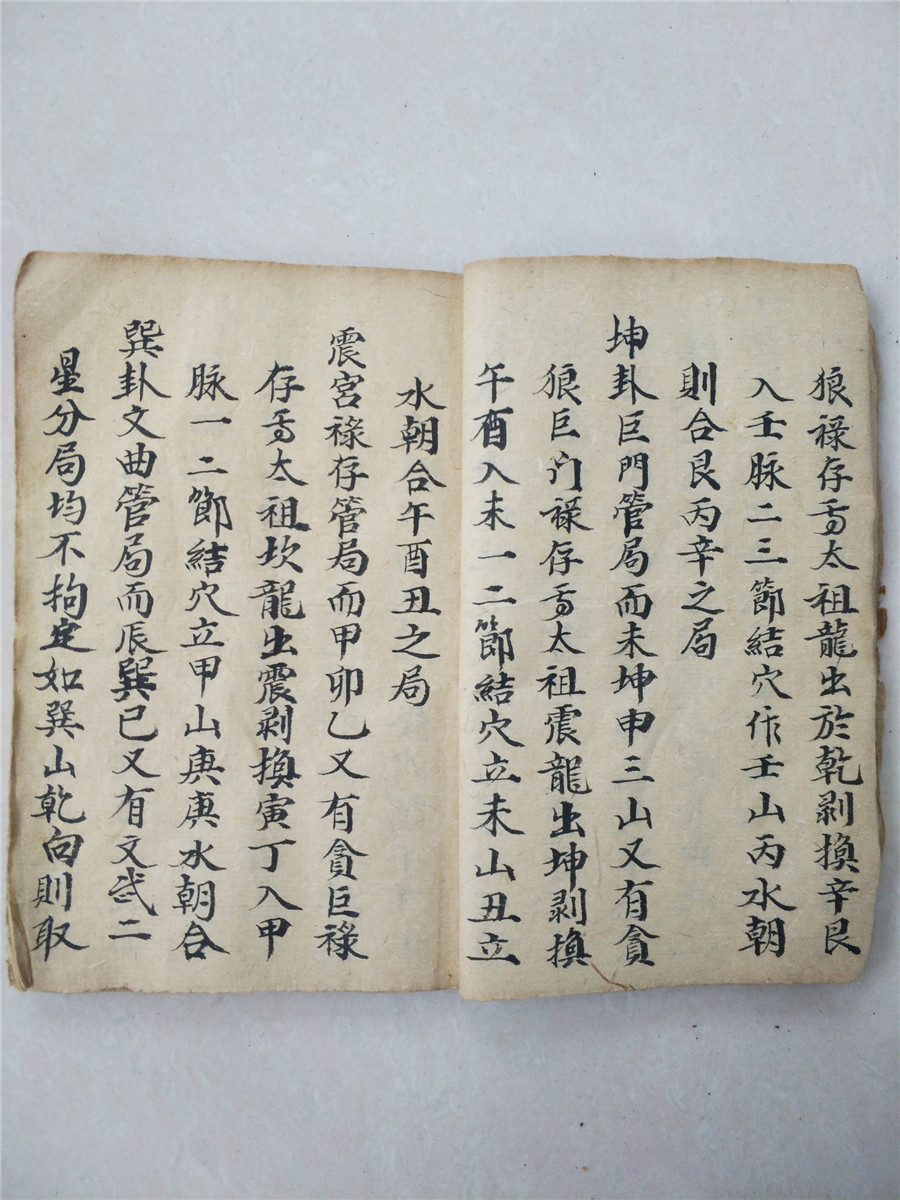 狼禄存為太祖龍出於乾剥換辛艮
入壬脉二三節結穴作壬山丙水朝
則合艮丙辛之局
坤卦巨門管局而未坤申三山又有貪
狼巨门禄存為太祖震龍出坤剥換
午酉入未一二節結穴立未山丑立
水朝合午酉丑之局
震宫禄存管局而甲卯乙又有貪巨禄
存為太祖坎龍出震剥換寅丁入甲
脉一二節結穴立甲山庚庚水朝合
巽卦文曲管局而辰巽巳又有文武二
星分局均不拘定如巽山乾向則取